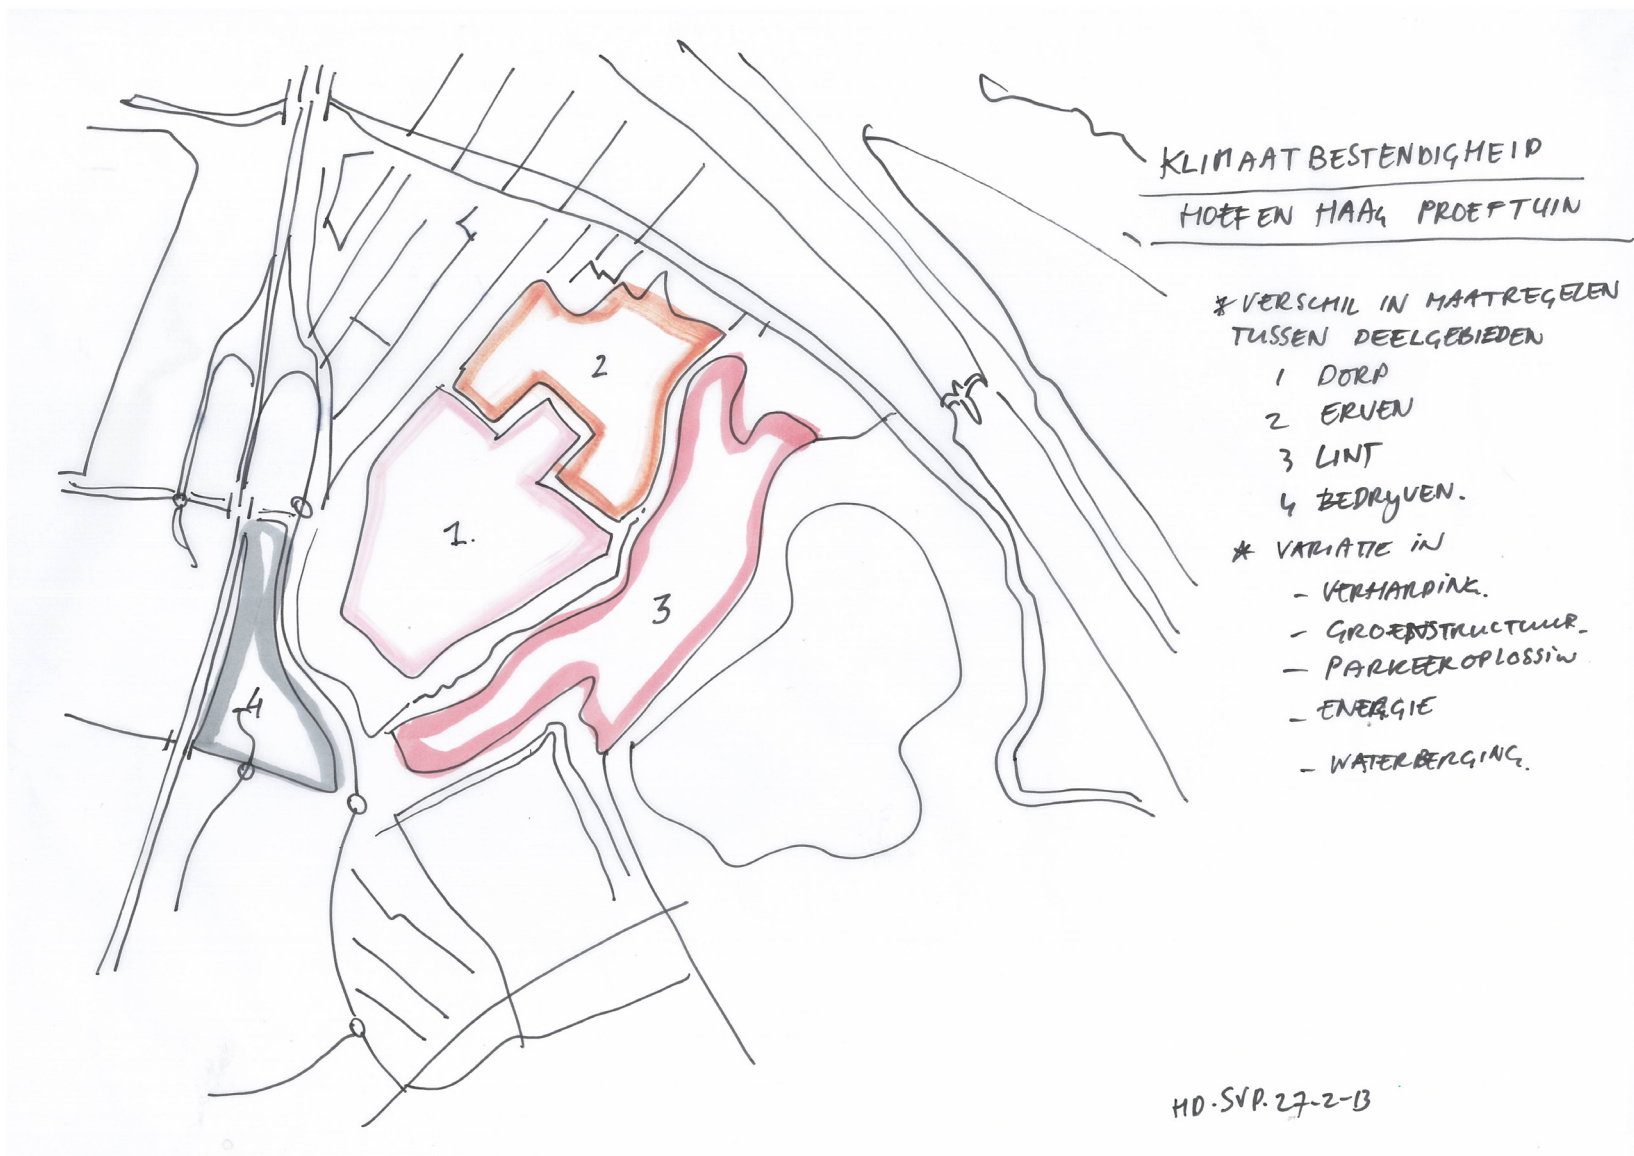 KLIMAATBESTENDIGHEID
HOEF EN HAAG PROEFTUIN
* VERSCHIL IN MAATREGELEN
TUSSEN DEELGEBIEDEN
1 DORP
2 ERVEN
3 LINT
4 BEDRIJVEN.
* VARIATIE IN
- VERHARDING.
- GROENSTRUCTUUR.
- PARKEEROPLOSSIN
- ENERGIE
- WATERBERGING.
2
1.
3
4
HD.SVP.27-2-13